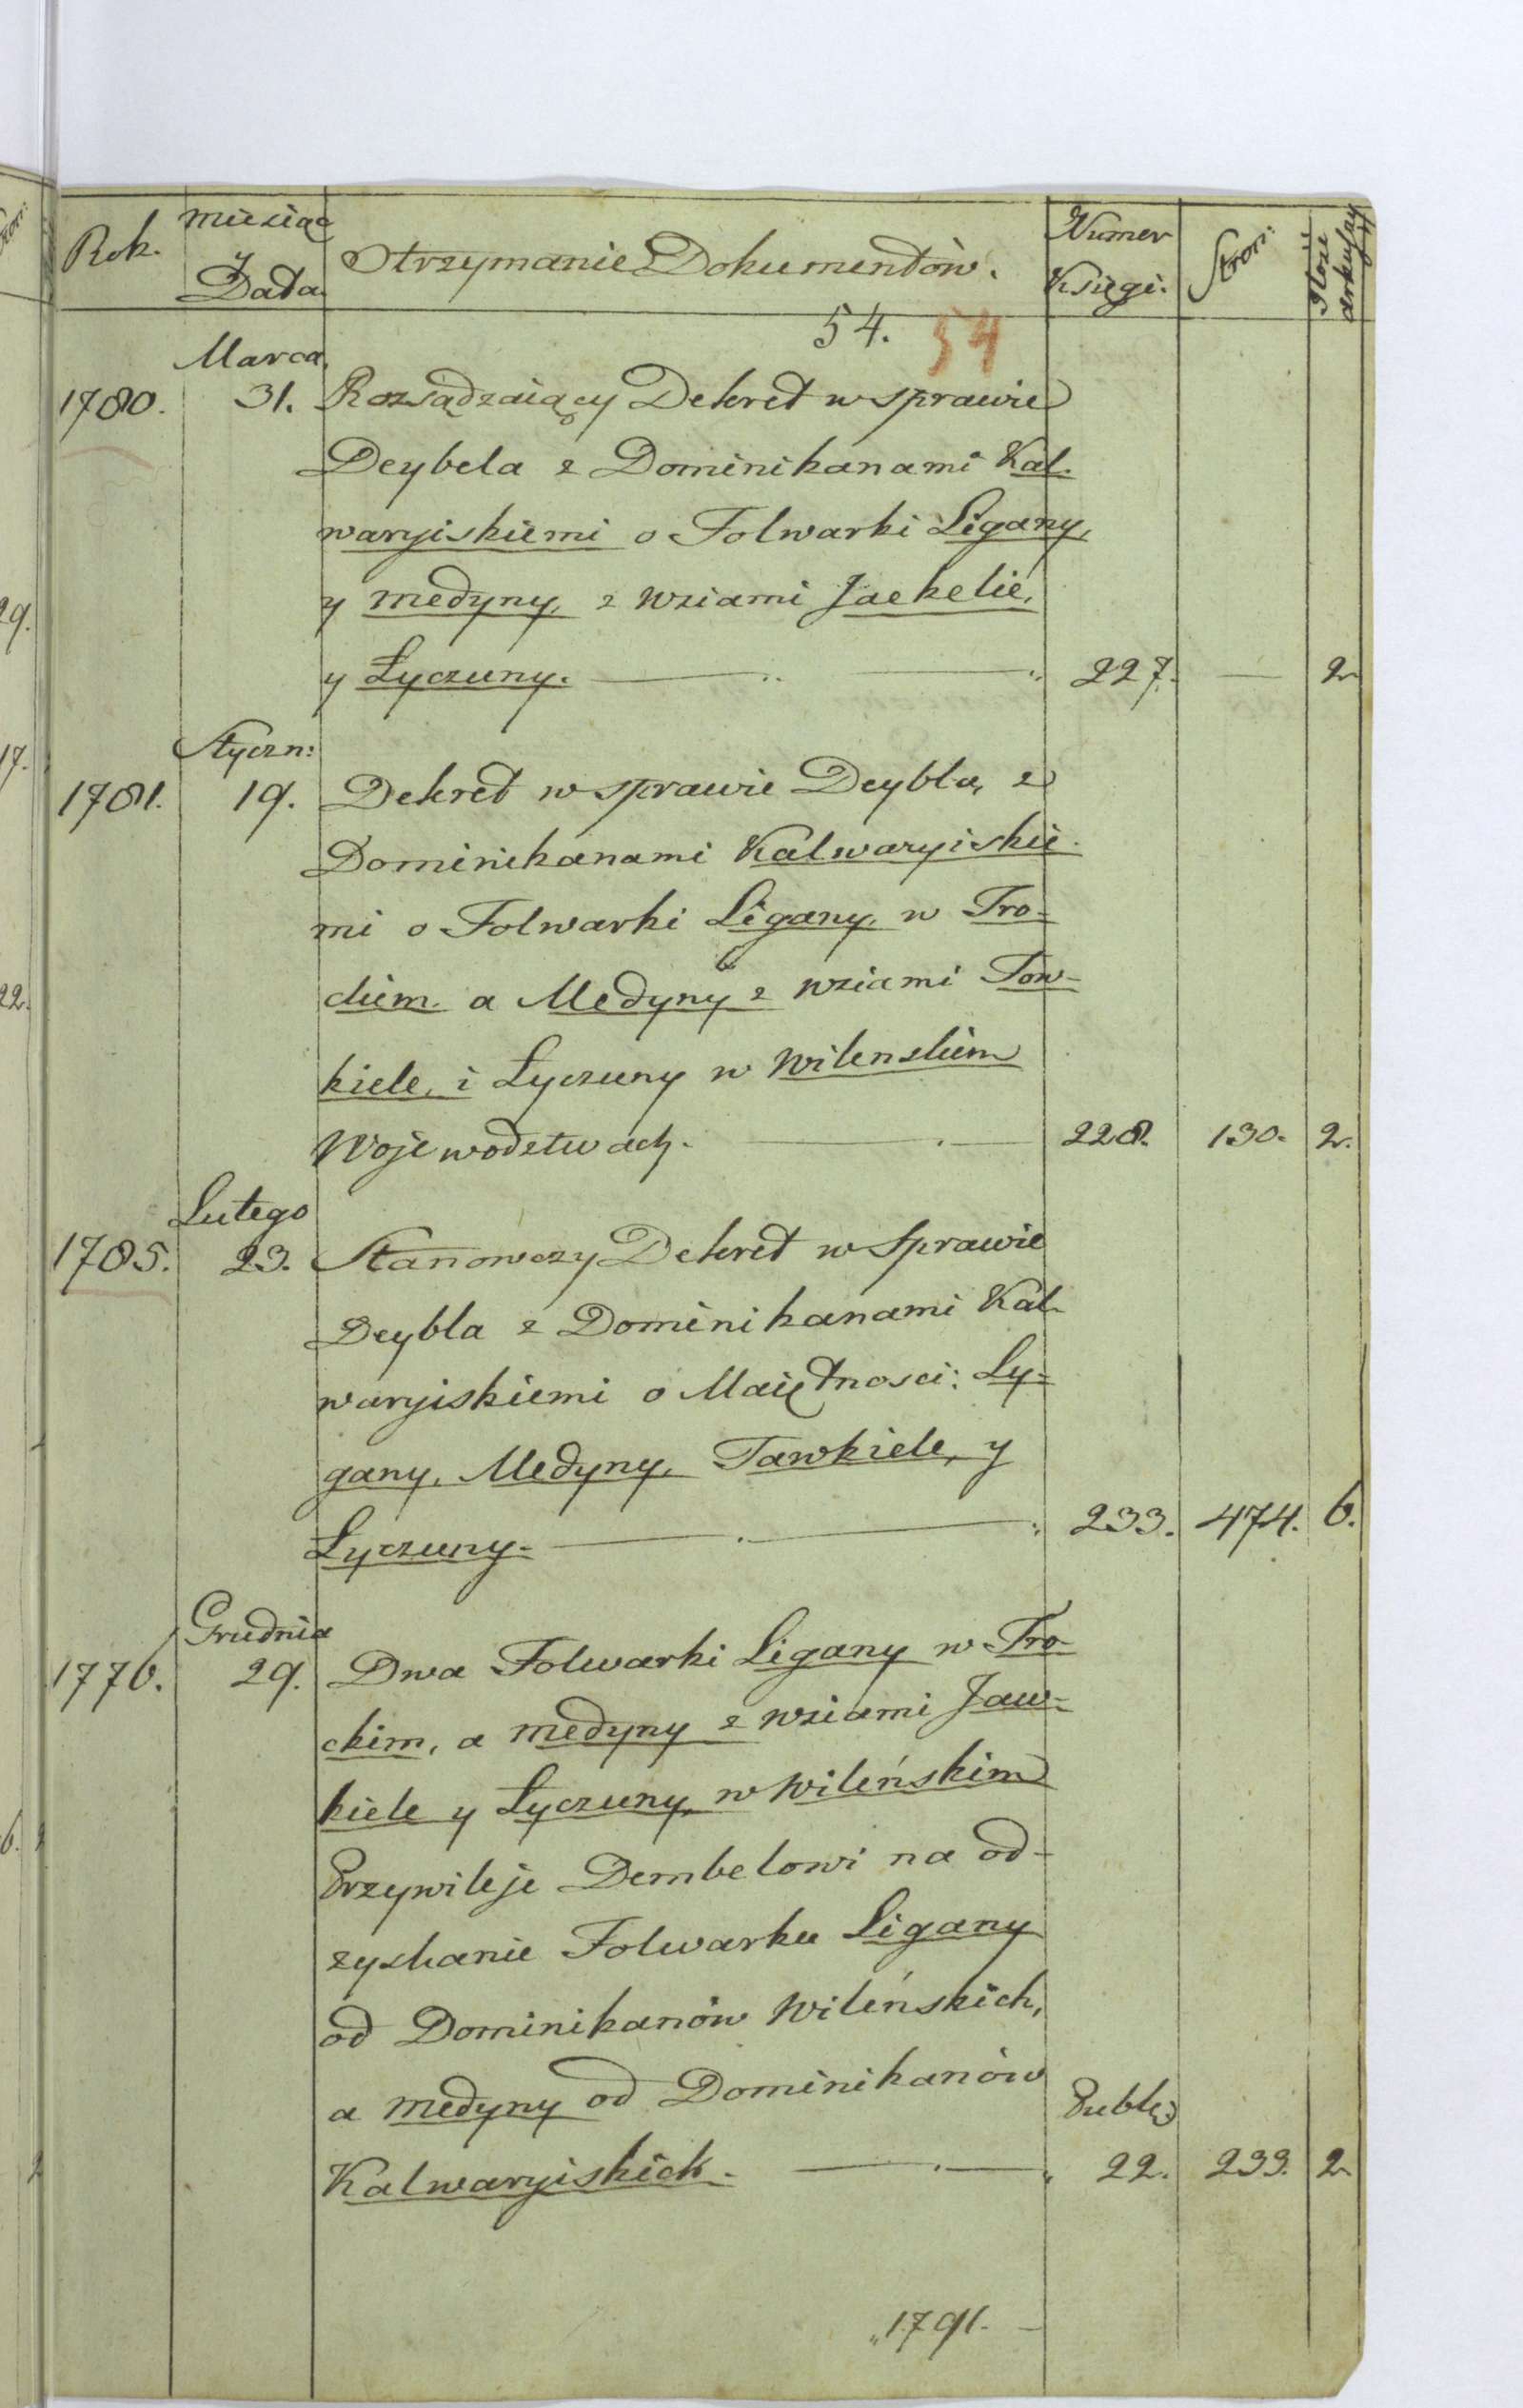 Rok. miesiąc y Data. Otrzymanie Dokumentów. Numer Księgi. Stron: Ilość arkuszy
54. 54
Marca
1780. 31. Rozsądzaiący Dekret w sprawie
Deybela z Dominikanami Kal-
waryiskiemi o Folwarki Ligany,
y medyny, z wsiami Jaekelie,
y Łyczuny. 227. — 2
Styczn:
1781. 19. Dekret w sprawie Deybla, z
Dominikanami Kalwaryiskie-
mi o Folwarki Ligany, w Tro-
ckiem a Medyny z wsiami Tow-
kiele, i Łyczuny w Wilenskiem
Wojewodztwach. 228. 130. 2.
Lutego
1785. 23. Stanowczy Dekret w Sprawie
Deybla z Dominikanami Kal-
waryiskiemi o Maiętnosci: Ly-
gany, Medyny, Tawkiele, y
Łyczuny. 233. 474. 6.
Grudnia
1776. 29. Dwa Folwarki Ligany w Tro-
ckim, a medyny z wsiami Jaw-
kiele y Łyczuny, w Wileńskim
Przywileje Dembelowi na od-
zyskanie Folwarku Ligany
od Dominikanów Wileńskich,
a medyny od Dominikanów
Publ:
Kalwaryiskich. 22. 233. 2
1791.